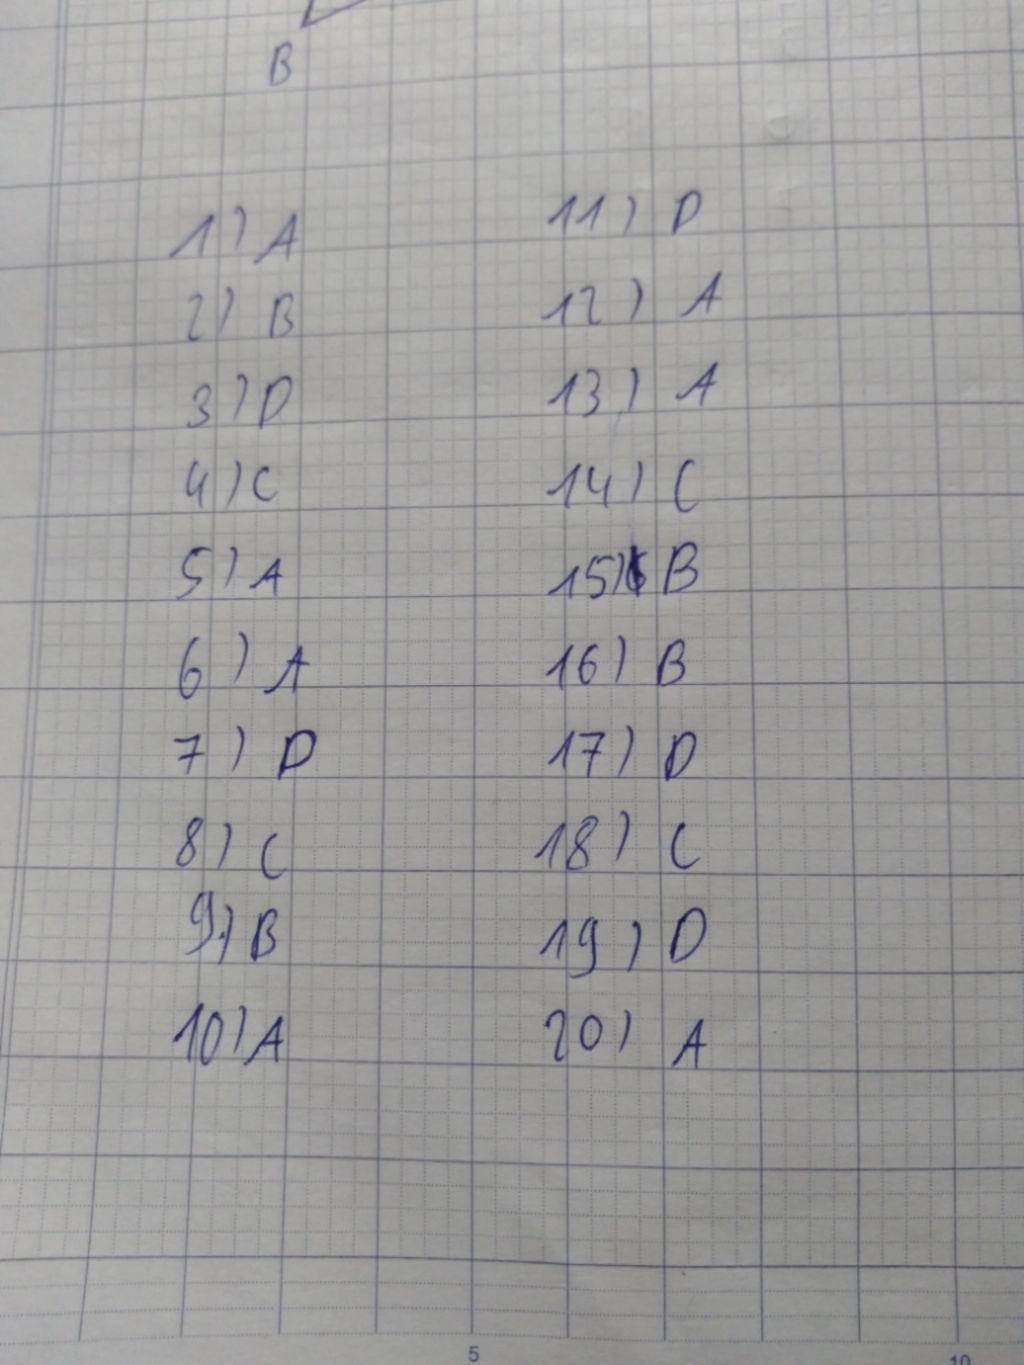 B
1) A
2) B
3) D
4) C
5) A
6) A
7) D
8) C
9) B
10) A
11) D
12) A
13) A
14) C
15) B
16) B
17) D
18) C
19) D
20) A
5
10